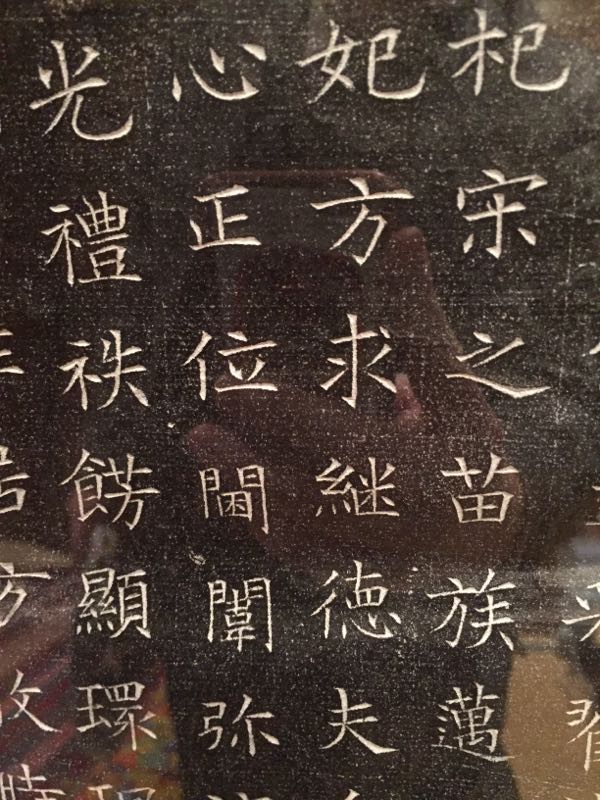 杞宋之苗族邁
妃方求継徳夫
心正位閫闈弥
光禮袟餝顯環
方